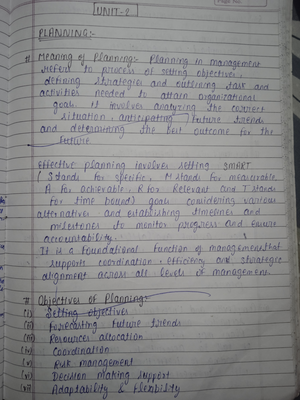 UNIT-2
PLANNING:-
# Meaning of Planning:- Planning in management
refers to process of setting objectives,
defining strategies and outlining task and
activities needed to attain organisational
goals. It involves analyzing the correct
situation, anticipating future trends
and determining the best outcome for the
future.
Effective planning involves setting SMART
( S stands for specific, M stands for measurable
A for achievable, R for Relevant and T stands
for time bound) goals considering various
alternatives and establishing timelines and
milestones to monitor progress and ensure
accountability.
It is a foundational function of management that
supports coordination, efficiency and strategic
alignment across all levels of management.
# Objectives of Planning:-
(i) Setting objectives
(ii) Forecasting future trends
(iii) Resources allocation
(iv) Coordination
(v) Risk management
(vi) Decision making support
(vii) Adaptability & flexibility